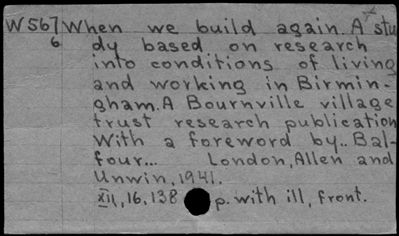 W567 When we build again. A stu
6 dy based on research
into conditions of living
and working in Birmin-
gham. A Bournville village
trust research publication
With a foreword by.. Bal-
four... London, Allen and
Unwin, 1941.
XII, 16, 138 p. with ill, front.